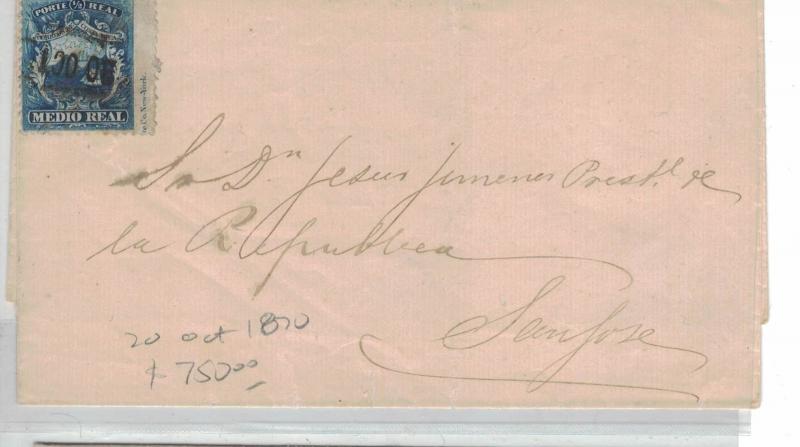 PORTE (½) REAL
MEDIO REAL
Co. New-York.
Sr Dn Jesus Jimenes Presid.te de
la Republica
San Jose
20 oct 1870
$ 750⁰⁰